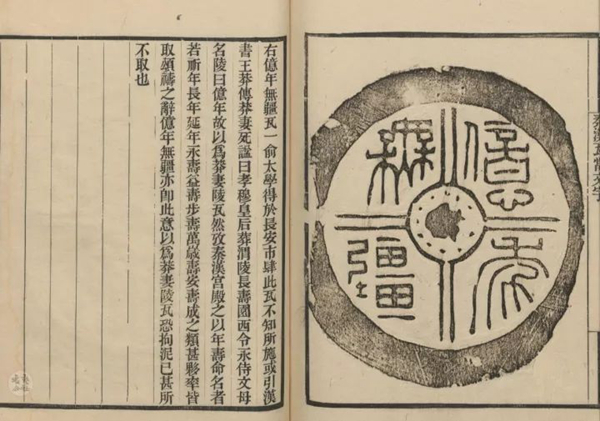 秦漢瓦當文字
億年
無疆
右億年無疆瓦一俞太學得於長安市肆此瓦不知所施或引漢
書王莽傳莽妻死諡曰孝穆皇后葬渭陵長壽園西令永侍文母
名陵曰億年故以爲莽妻陵瓦然攷秦漢宮殿之以年壽命名者
若祈年長年延年永壽益壽步壽萬歲壽安壽成之類甚夥率皆
取頌禱之辭億年無疆亦卽此意以爲莽妻陵瓦恐拘泥已甚所
不取也